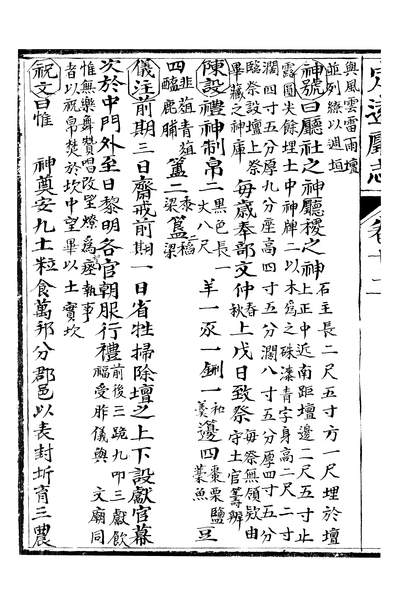 定遠廳志 卷十二
與風雲雷雨壇
並列繚以週垣
神號曰廳社之神廳稷之神
石主長二尺五寸方一尺埋於壇
上正中近南距壇邊二尺五寸止
露圓尖餘埋土中神牌二以木為之硃漆青字身高二尺二寸
濶四寸五分厚九分座高四寸五分濶八寸五分厚四寸五分
臨祭設壇上祭
畢藏之神庫
每歲奉部文仲
春
秋
上戊日致祭
每祭無領欵由
守土官籌辦
陳設禮神制帛二
黑色長一
丈八尺
羊一豕一鉶一
和
羹
籩四
棗栗鹽
藁魚
豆
四
韭菹青菹
醢鹿脯
簠二
簋二
儀注前期三日齋戒前期一日省牲掃除壇之上下設獻官幕
次於中門外至日黎明各官朝服行禮
前後三跪九叩三獻飲
福受胙儀與 文廟同
惟無樂舞贊唱改望燎為瘞執事
者以祝帛焚於坎中望畢以土實坎
祝文曰惟 神奠安九土粒食萬邦分郡邑以表封圻育三農